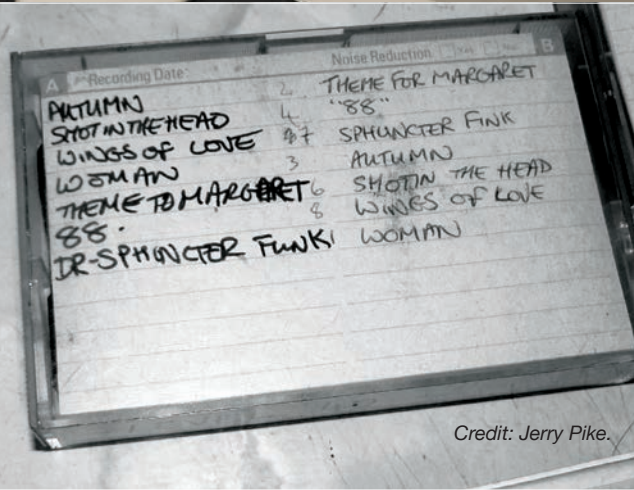 A Recording Date: Noise Reduction Yes No B
AUTUMN
SHOT IN THE HEAD
WINGS OF LOVE
WOMAN
THEME TO MARGARET
88.
DR-SPHUNCTER FUNK
2
4
7
3
6
8
THEME FOR MARGARET
"88"
SPHUNCTER FINK
AUTUMN
SHOT IN THE HEAD
WINGS OF LOVE
WOMAN
Credit: Jerry Pike.